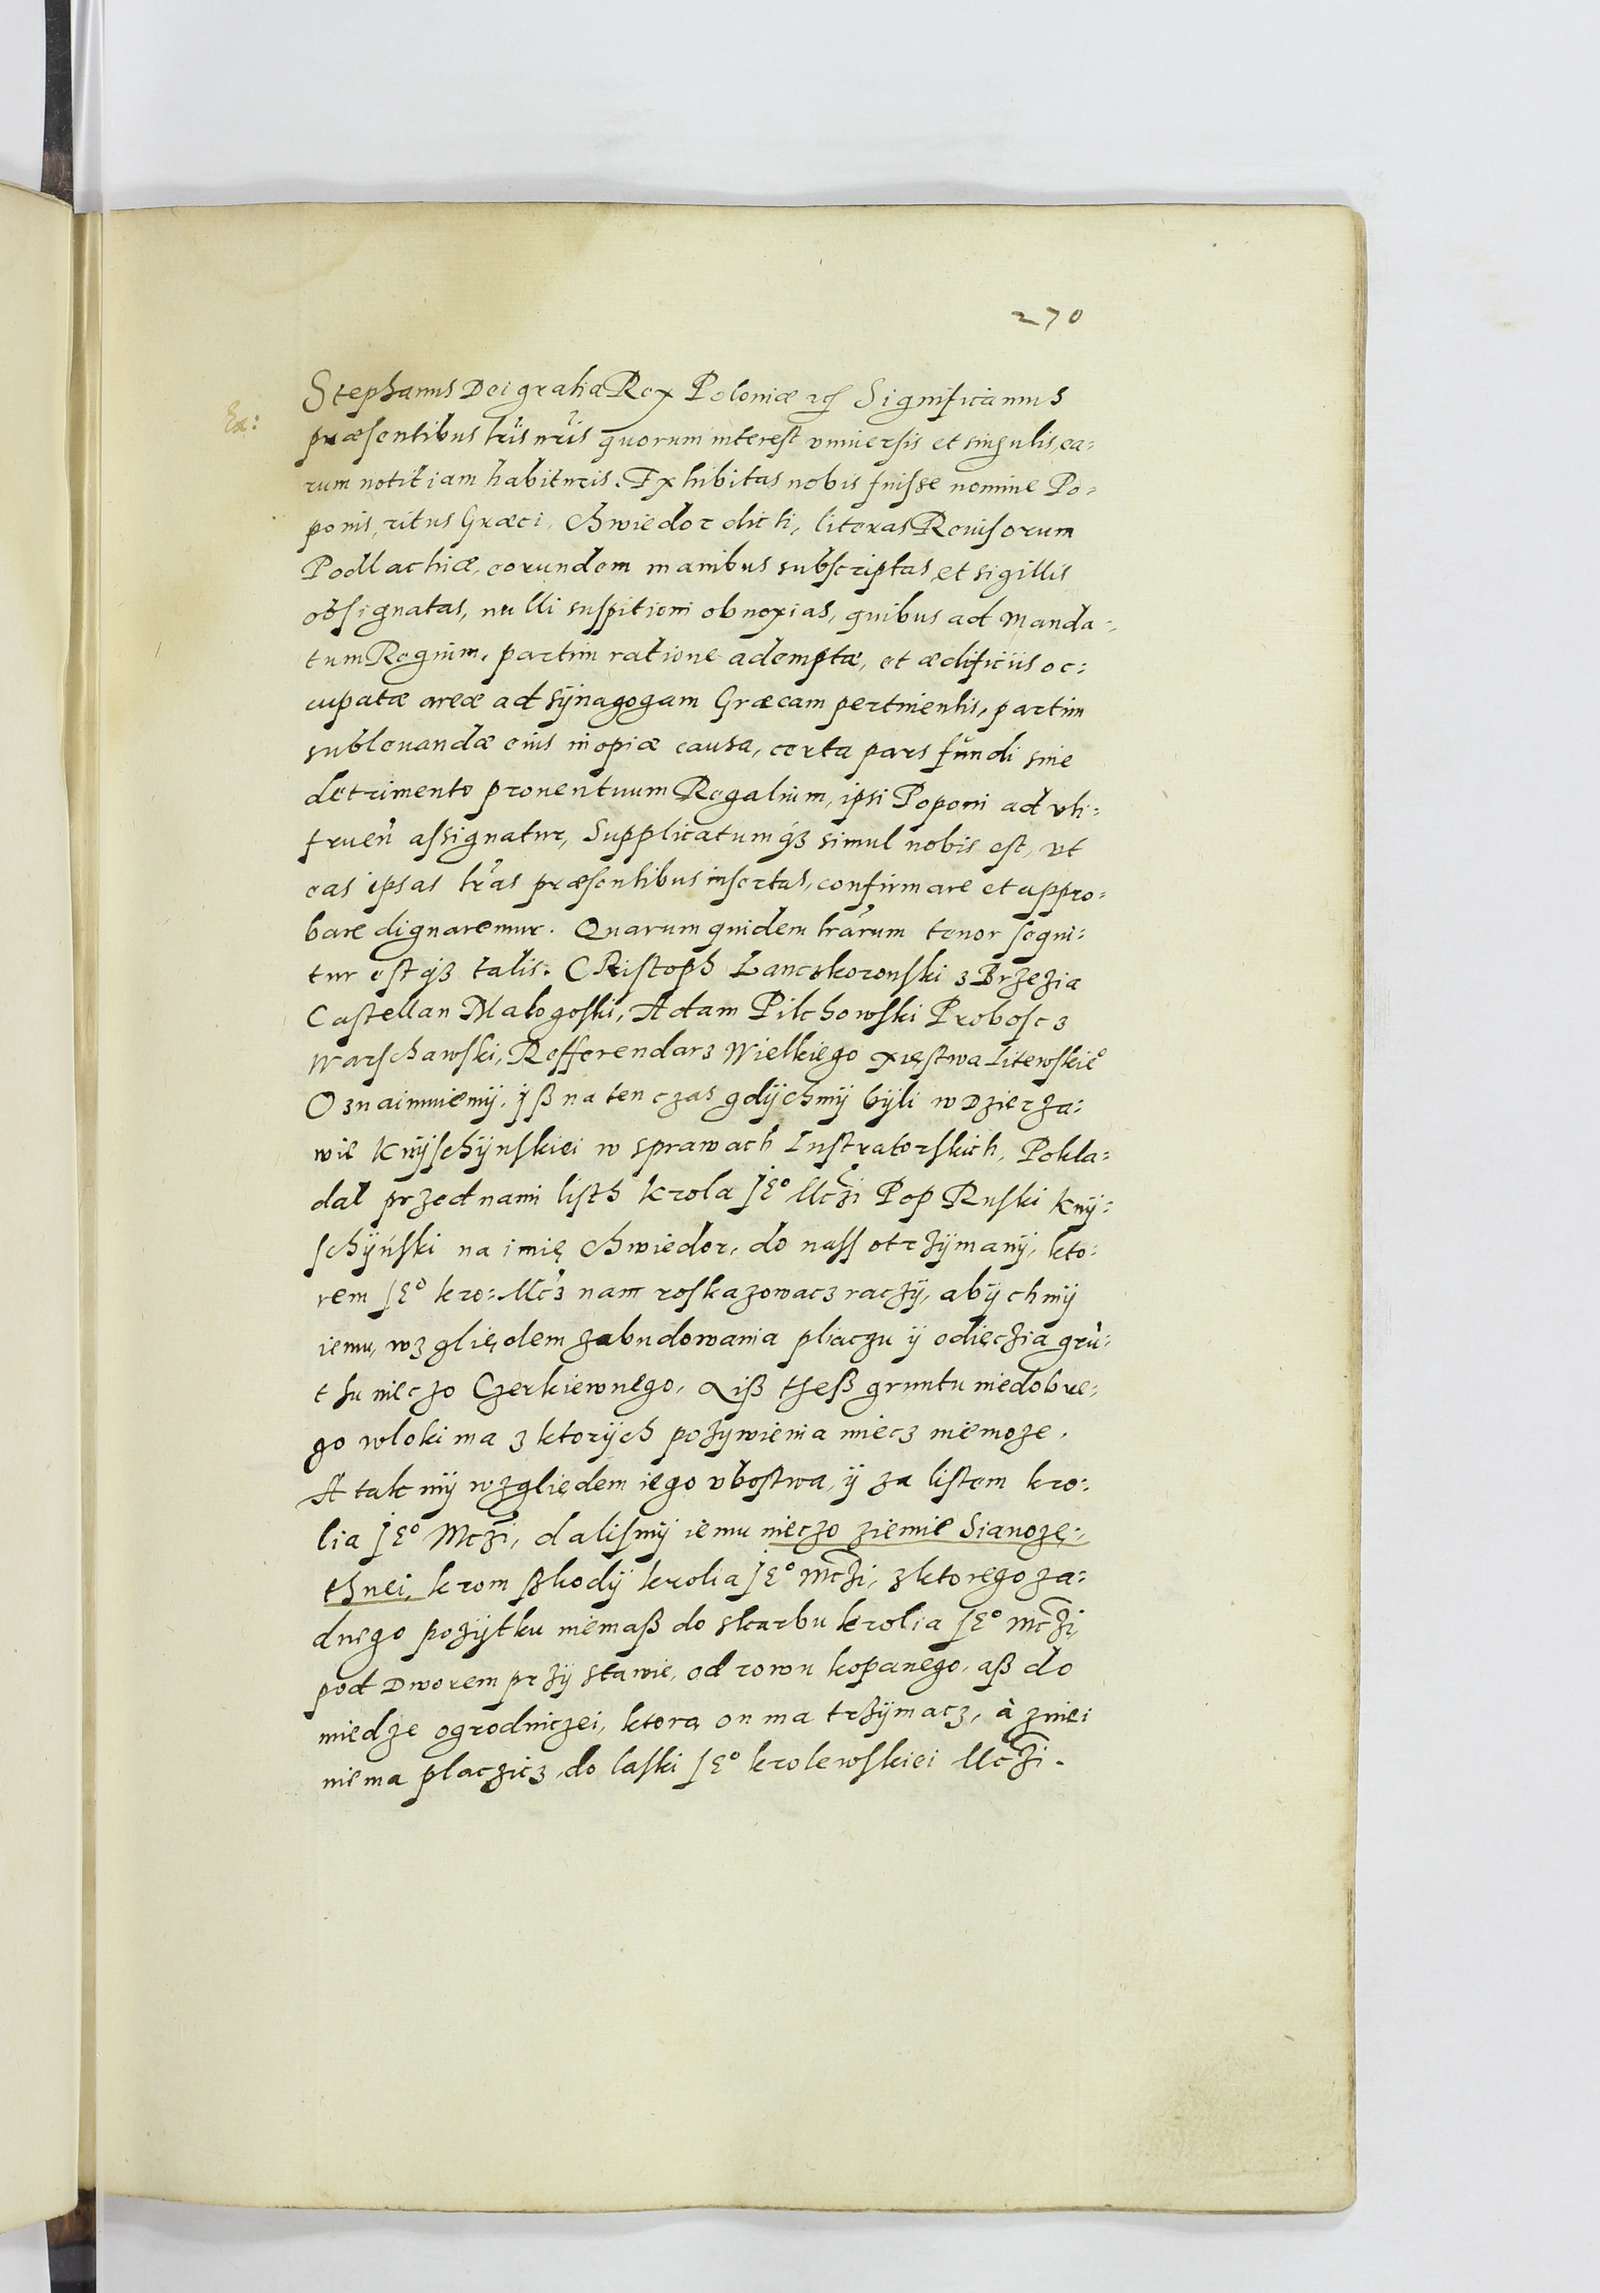 270
Ex:
Stephanus Dei gratia Rex Poloniæ etc Significamus
præsentibus lr̃is nr̃is quorum interest vniuersis et singulis, ea:
rum notitiam habituris. Exhibitas nobis fuisse nomine Po:
ponis, ritus Græci, Chwiedor dicti, literas Reuisorum
Podlachiæ, eorundem manibus subscriptas, et sigillis
obsignatas, nulli suspitioni obnoxias, quibus ad Manda:
tum Regium, partim ratione ademptæ, et ædificiis oc:
cupatæ areæ ad sÿnagogam Græcam pertinentis, partim
subleuandæ eius inopiæ causa, certa pars fundi sine
detrimento prouentuum Regalium, ipsi Poponi ad vti:
fruen̄ assignatur, Supplicatumq́ꝫ simul nobis est, vt
eas ipsas lr̃as præsentibus insertas, confirmare et appro:
bare dignaremur. Quarum quidem lr̃arum tenor sequi:
tur estq́ꝫ talis. CRistoph Lanczkoronski z Brzezia
Castellan Malogoski, Adam Pilchowski Probosc z
Warschawski, Refferendarz Wielkiego Xięstwa Litewskie°
Oznaimuiemÿ. ÿß na ten czas gdÿchmÿ bÿli w Dzierża:
wie Knÿschÿnskiei w sprawach Lustratorskich, Pokla:
dal przed nami listh krola JE° Mczi Pop Ruski Knÿ:
schÿński na imię Chwiedor, do nass otrzÿmanÿ, kto:
rem JE° kro: Mcz nam roskazowacz raczÿ, abÿchmÿ
iemu, wzglięedem zabudowania pliaczu ÿ odięczia grū:
thu nieczo Czerkiewnego, A iß theß gruntu niedobre:
go wloki ma z ktorÿch pożywienia miecz niemoże.
A tak mÿ wzgliedem iego vbostwa, ÿ za listem kro:
lia JE° Mczi, dalismÿ iemu nieczo ziemie Sianożę:
thnei, krom ßkodÿ krolia JE° Mczi, z ktorego ża:
dnego pożÿtku niemaß do skarbu krolia JE° Mczi,
pod Dworem przÿ stawie, od rowu kopanego, aß do
miedze ogrodniczei, ktorą on ma trzÿmacz, à zniei
niema placzicz, do laski JE° krolewskiei Mczi.